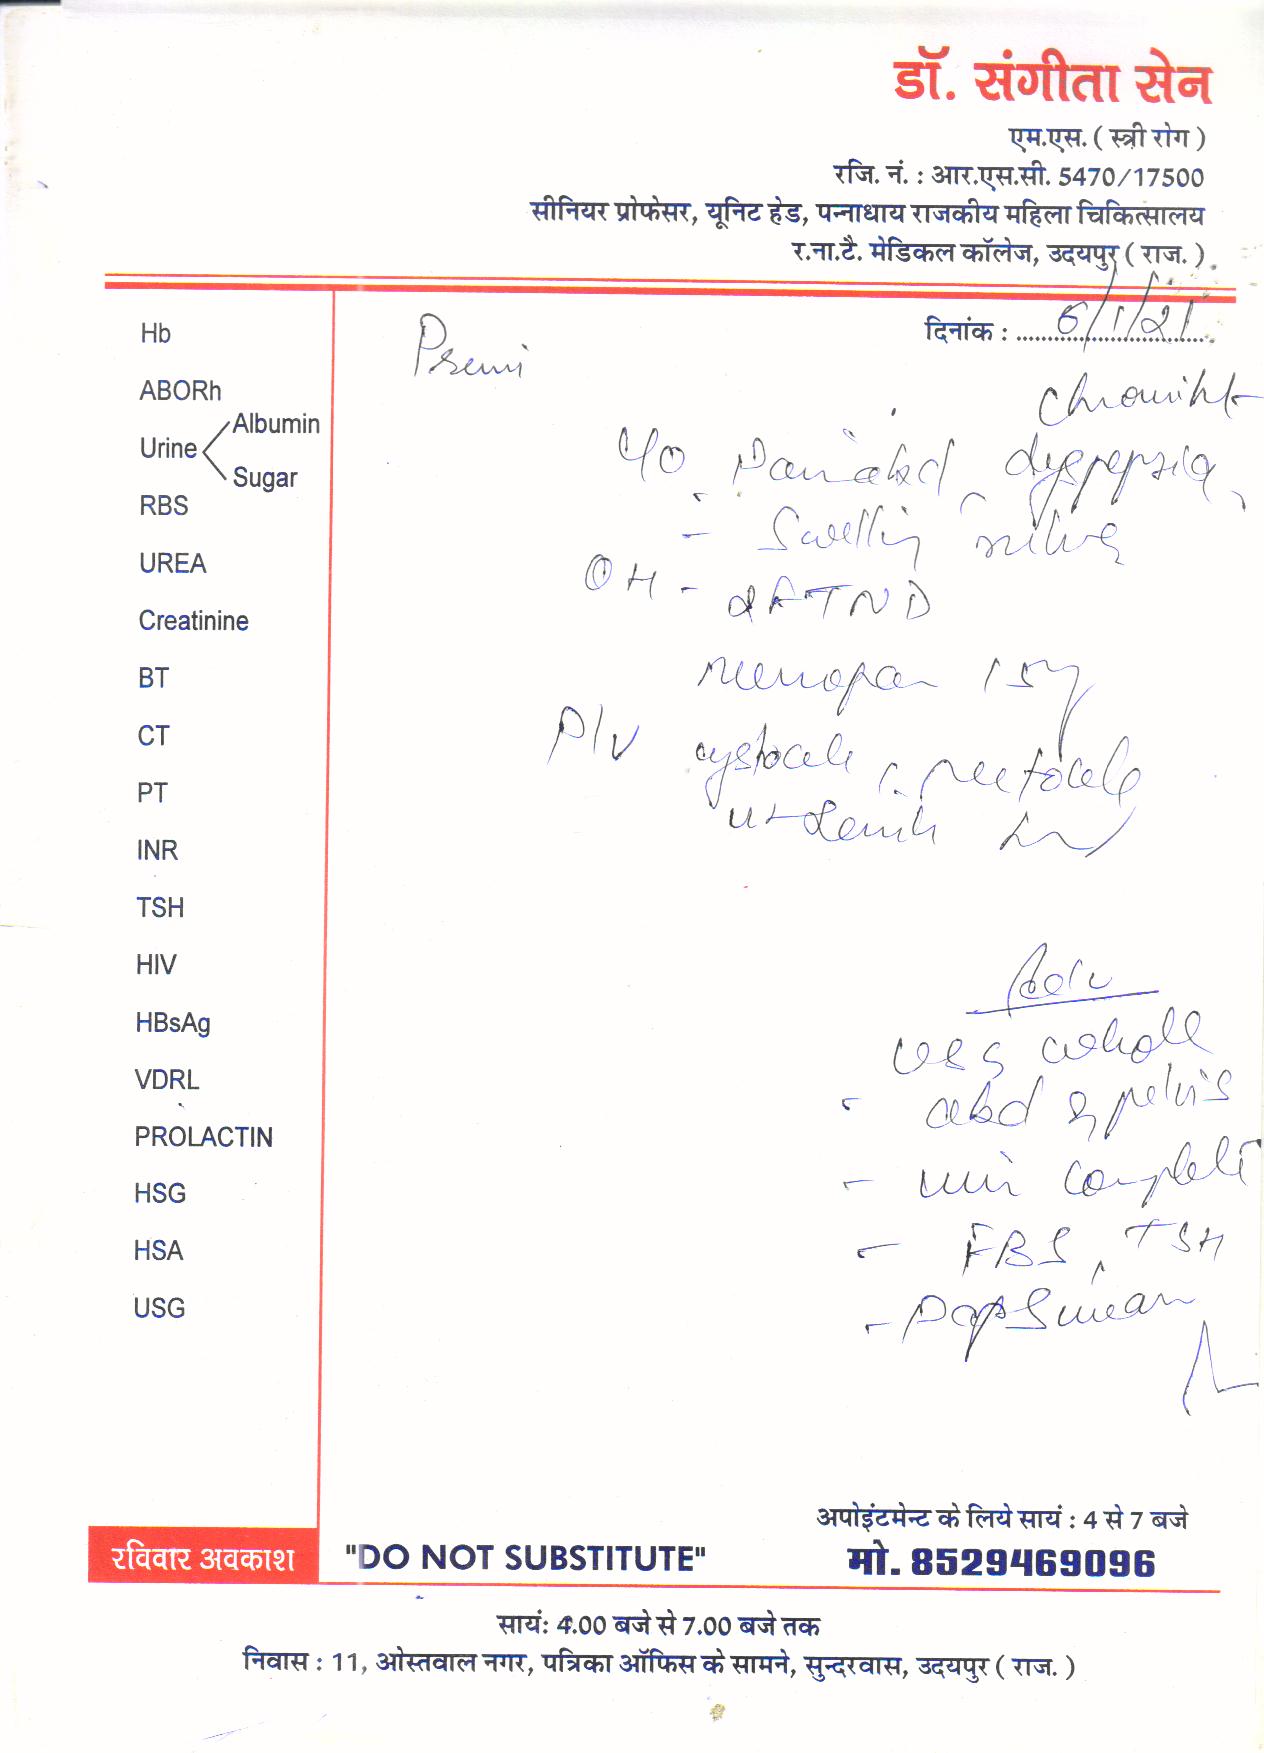 डॉ. संगीता सेन
एम.एस. ( स्त्री रोग )
रजि. नं. : आर.एस.सी. 5470/17500
सीनियर प्रोफेसर, यूनिट हेड, पन्नाधाय राजकीय महिला चिकित्सालय
र.ना.टै. मेडिकल कॉलेज, उदयपुर ( राज. )
दिनांक : 6/1/21
Hb
ABORh
Urine
Albumin
Sugar
RBS
UREA
Creatinine
BT
CT
PT
INR
TSH
HIV
HBsAg
VDRL
PROLACTIN
HSG
HSA
USG
Premi
Pain abd, dyspepsia,
- Swelling
OH - 2FTND
P/V cystocele
Adv
USG whole
- abd & pelvis
complete
- FBS, TSH
- Pap Smear
रविवार अवकाश
"DO NOT SUBSTITUTE"
अपोइंटमेन्ट के लिये सायं : 4 से 7 बजे
मो. 8529469096
सायं: 4.00 बजे से 7.00 बजे तक
निवास : 11, ओस्तवाल नगर, पत्रिका ऑफिस के सामने, सुन्दरवास, उदयपुर ( राज. )